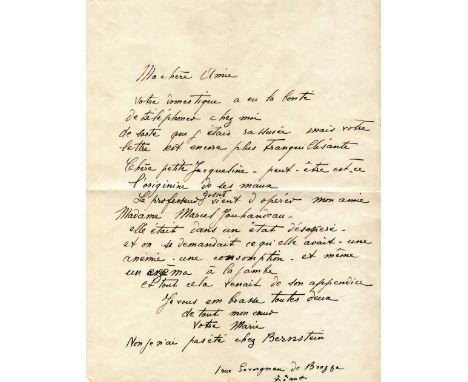 Ma chère Amie
votre domestique a eu la bonté
de téléphoner chez moi
de sorte que j'étais rassurée mais votre
lettre est encore plus tranquillisante
Chère petite Jacqueline - peut-être est-ce
l'origine de ses maux
Le professeur Gosset vient d'opérer mon amie
Madame Marcel Jouhandeau -
elle était dans un état désespéré -
et on se demandait ce qu'elle avait - une
anémie - une consomption - et même
un à la jambe
et tout cela venait de son appendice
Je vous embrasse toutes deux
de tout mon cœur
votre Marie
Non je n'ai pas été chez Bernstein
1 rue Savorgnan de Brazza